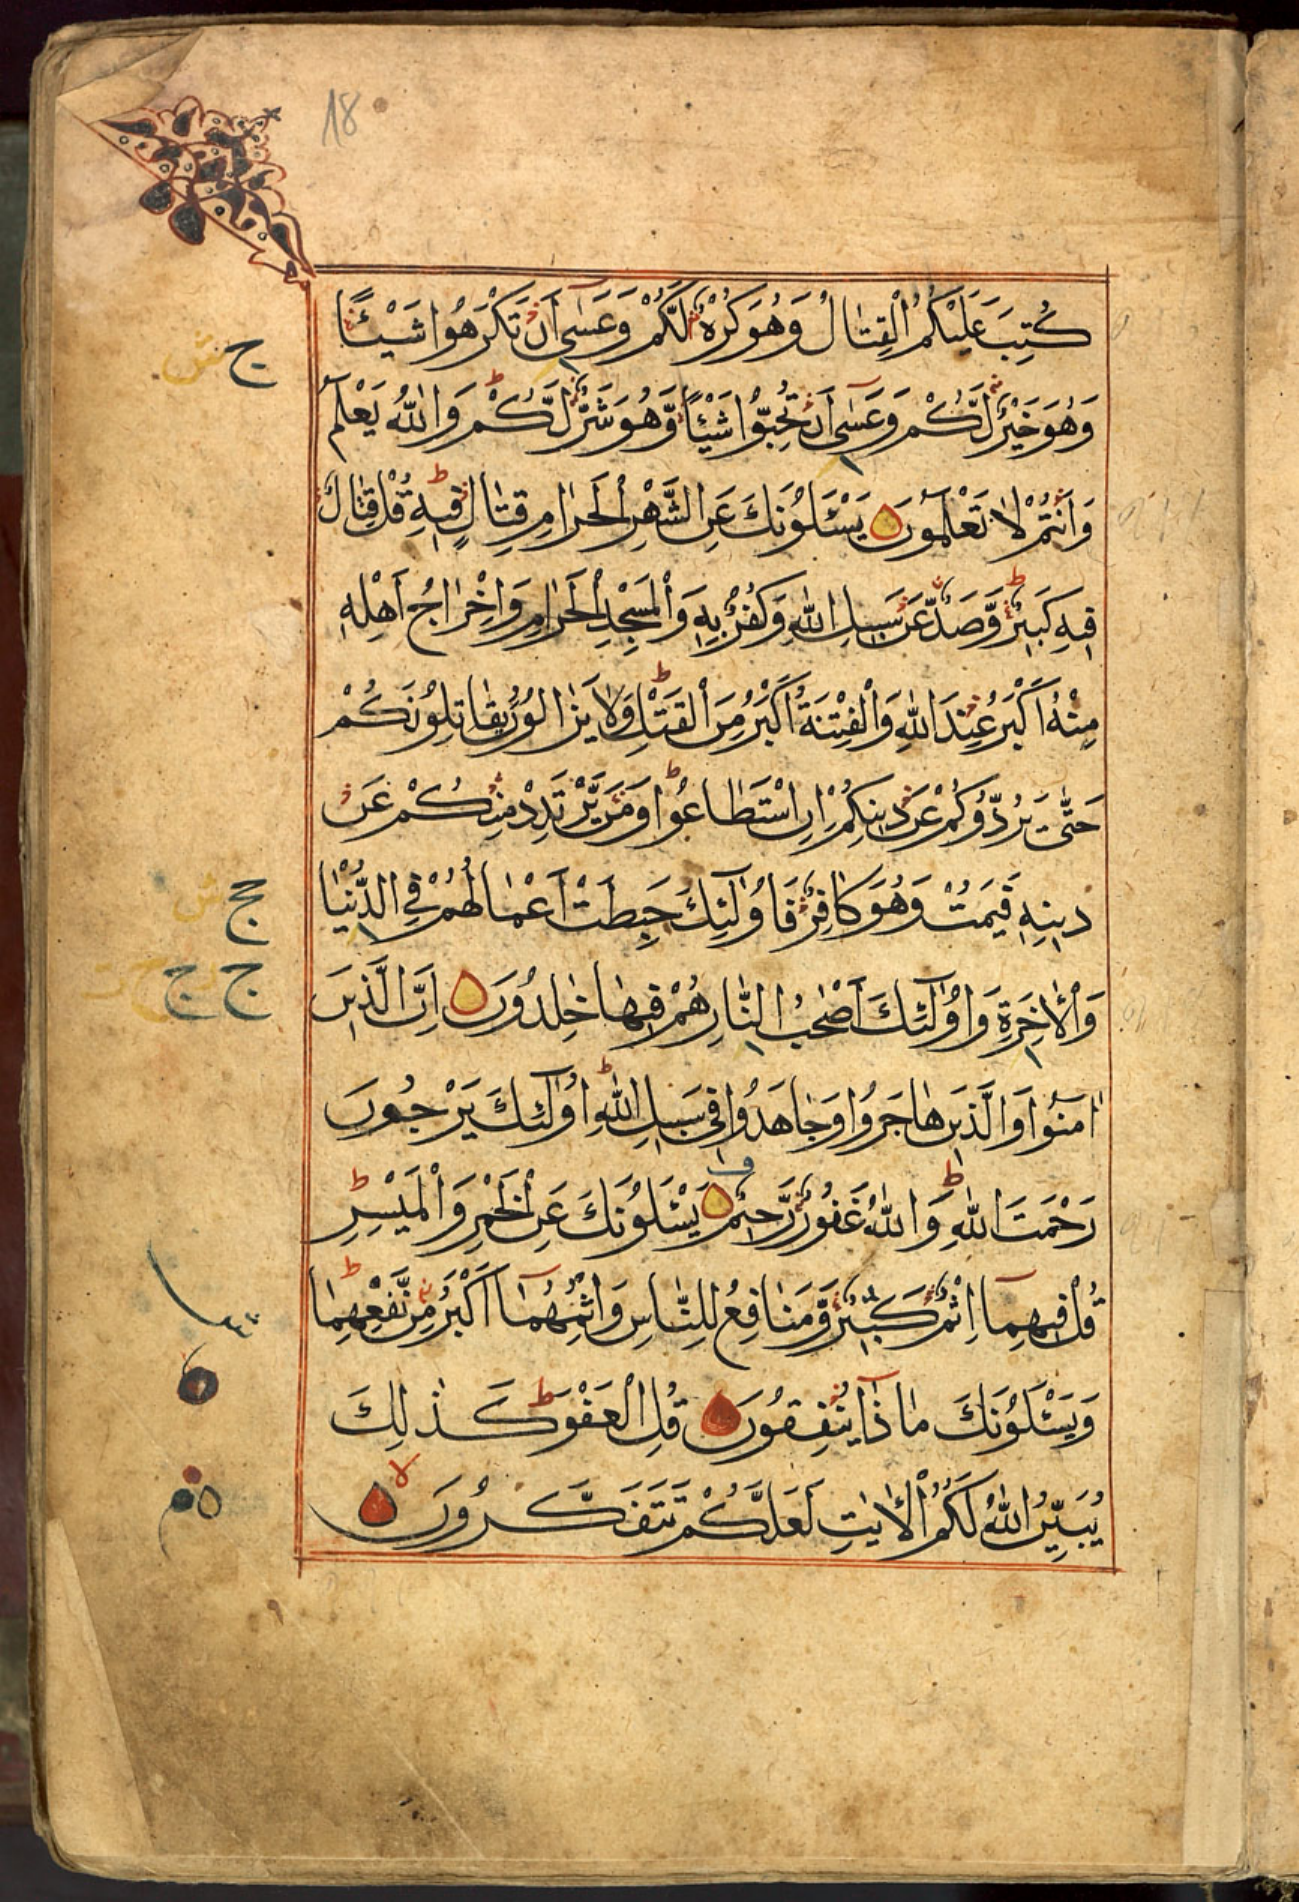 18
كُتِبَ عَلَيْكُمُ الْقِتَالُ وَهُوَ كُرْهٌ لَّكُمْ وَعَسٰى اَنْ تَكْرَهُوا شَيْئًا
وَهُوَ خَيْرٌ لَّكُمْ وَعَسٰى اَنْ تُحِبُّوا شَيْئًا وَّهُوَ شَرٌّ لَّكُمْ وَاللّٰهُ يَعْلَمُ
وَاَنْتُمْ لَا تَعْلَمُونَ يَسْئَلُونَكَ عَنِ الشَّهْرِ الْحَرَامِ قِتَالٍ فِيهِ قُلْ قِتَالٌ
فِيهِ كَبِيرٌ وَّصَدٌّ عَنْ سَبِيلِ اللّٰهِ وَكُفْرٌ بِهِ وَالْمَسْجِدِ الْحَرَامِ وَاِخْرَاجُ اَهْلِهِ
مِنْهُ اَكْبَرُ عِنْدَ اللّٰهِ وَالْفِتْنَةُ اَكْبَرُ مِنَ الْقَتْلِ وَلَا يَزَالُونَ يُقَاتِلُونَكُمْ
حَتّٰى يَرُدُّوكُمْ عَنْ دِينِكُمْ اِنِ اسْتَطَاعُوا وَمَنْ يَّرْتَدِدْ مِنْكُمْ عَنْ
دِينِهِ فَيَمُتْ وَهُوَ كَافِرٌ فَاُولٰئِكَ حَبِطَتْ اَعْمَالُهُمْ فِي الدُّنْيَا
وَالْاٰخِرَةِ وَاُولٰئِكَ اَصْحٰبُ النَّارِ هُمْ فِيهَا خٰلِدُونَ اِنَّ الَّذِينَ
اٰمَنُوا وَالَّذِينَ هَاجَرُوا وَجَاهَدُوا فِي سَبِيلِ اللّٰهِ اُولٰئِكَ يَرْجُونَ
رَحْمَتَ اللّٰهِ وَاللّٰهُ غَفُورٌ رَّحِيمٌ يَسْئَلُونَكَ عَنِ الْخَمْرِ وَالْمَيْسِرِ
قُلْ فِيهِمَا اِثْمٌ كَبِيرٌ وَّمَنَافِعُ لِلنَّاسِ وَاِثْمُهُمَا اَكْبَرُ مِنْ نَّفْعِهِمَا
وَيَسْئَلُونَكَ مَاذَا يُنْفِقُونَ قُلِ الْعَفْوَ كَذٰلِكَ
يُبَيِّنُ اللّٰهُ لَكُمُ الْاٰيٰتِ لَعَلَّكُمْ تَتَفَكَّرُونَ